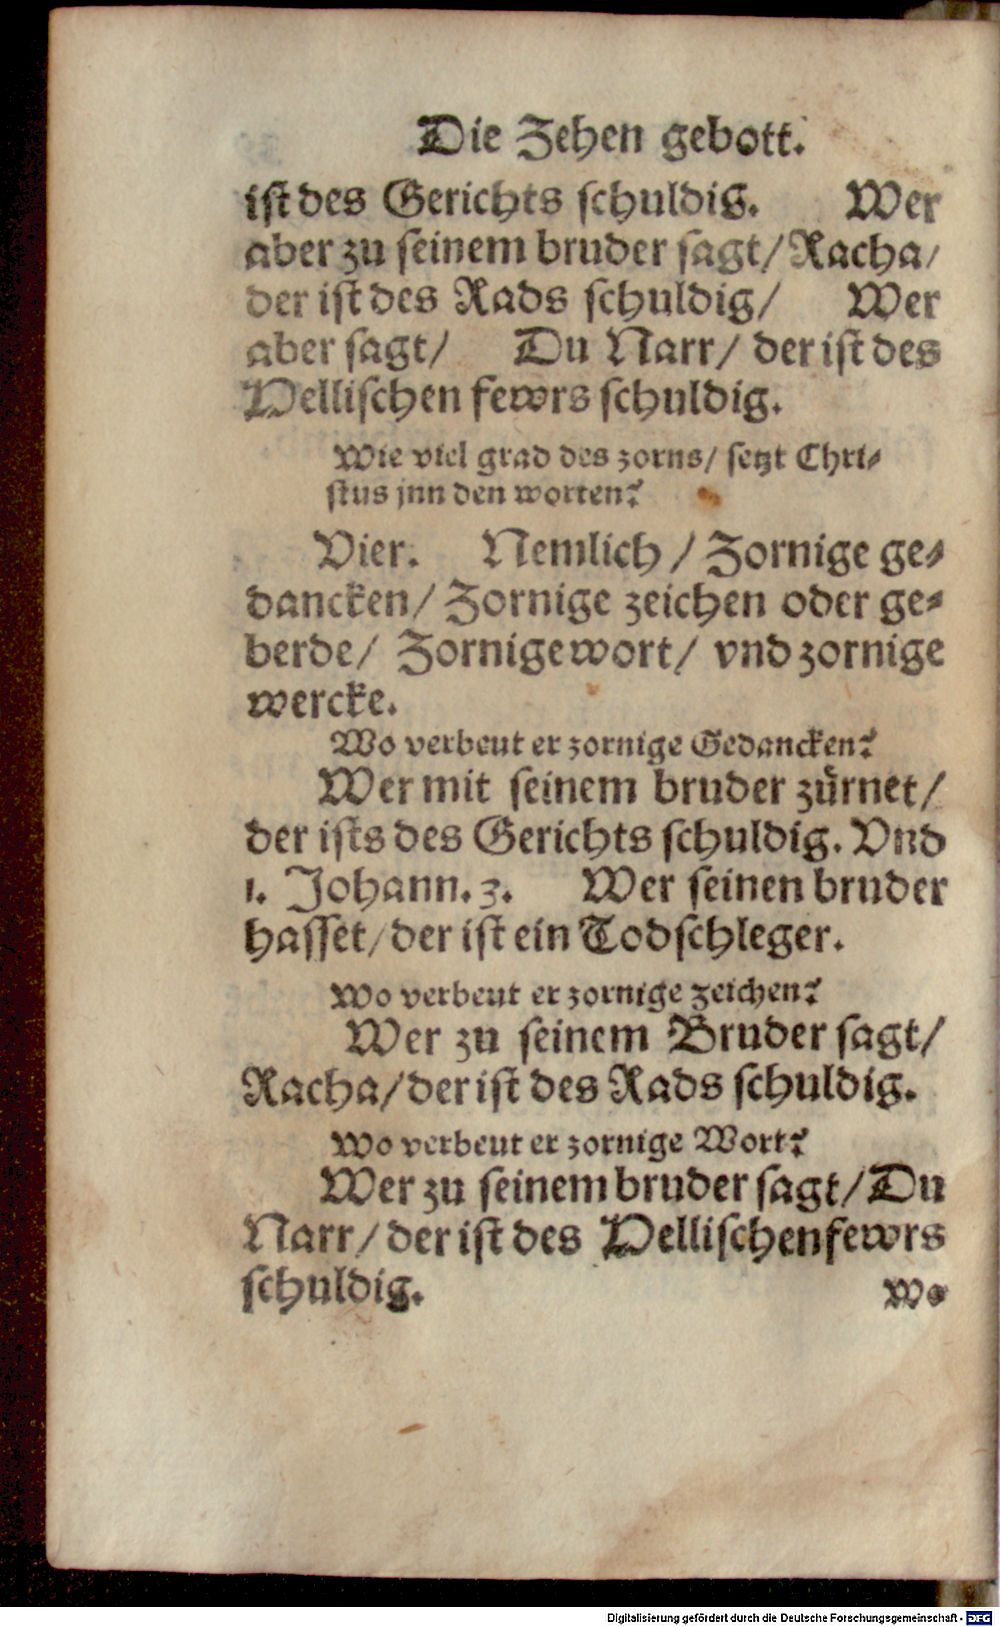 Die Zehen gebott.
ist des Gerichts schuldig. Wer
aber zu seinem bruder sagt/ Racha/
der ist des Rads schuldig/ Wer
aber sagt/ Du Narr/ der ist des
Hellischen fewrs schuldig.
Wie viel grad des zorns/ setzt Chri-
stus jnn den worten?
Vier. Nemlich/ Zornige ge-
dancken/ Zornige zeichen oder ge-
berde/ Zornige wort/ vnd zornige
wercke.
Wo verbeut er zornige Gedancken?
Wer mit seinem bruder zürnet/
der ists des Gerichts schuldig. Vnd
1. Johann. 3. Wer seinen bruder
hasset/ der ist ein Todschleger.
Wo verbeut er zornige zeichen?
Wer zu seinem Bruder sagt/
Racha/ der ist des Rads schuldig.
Wo verbeut er zornige Wort?
Wer zu seinem bruder sagt/ Du
Narr/ der ist des Hellischen fewrs
schuldig.
Wo
Digitalisierung gefördert durch die Deutsche Forschungsgemeinschaft - DFG